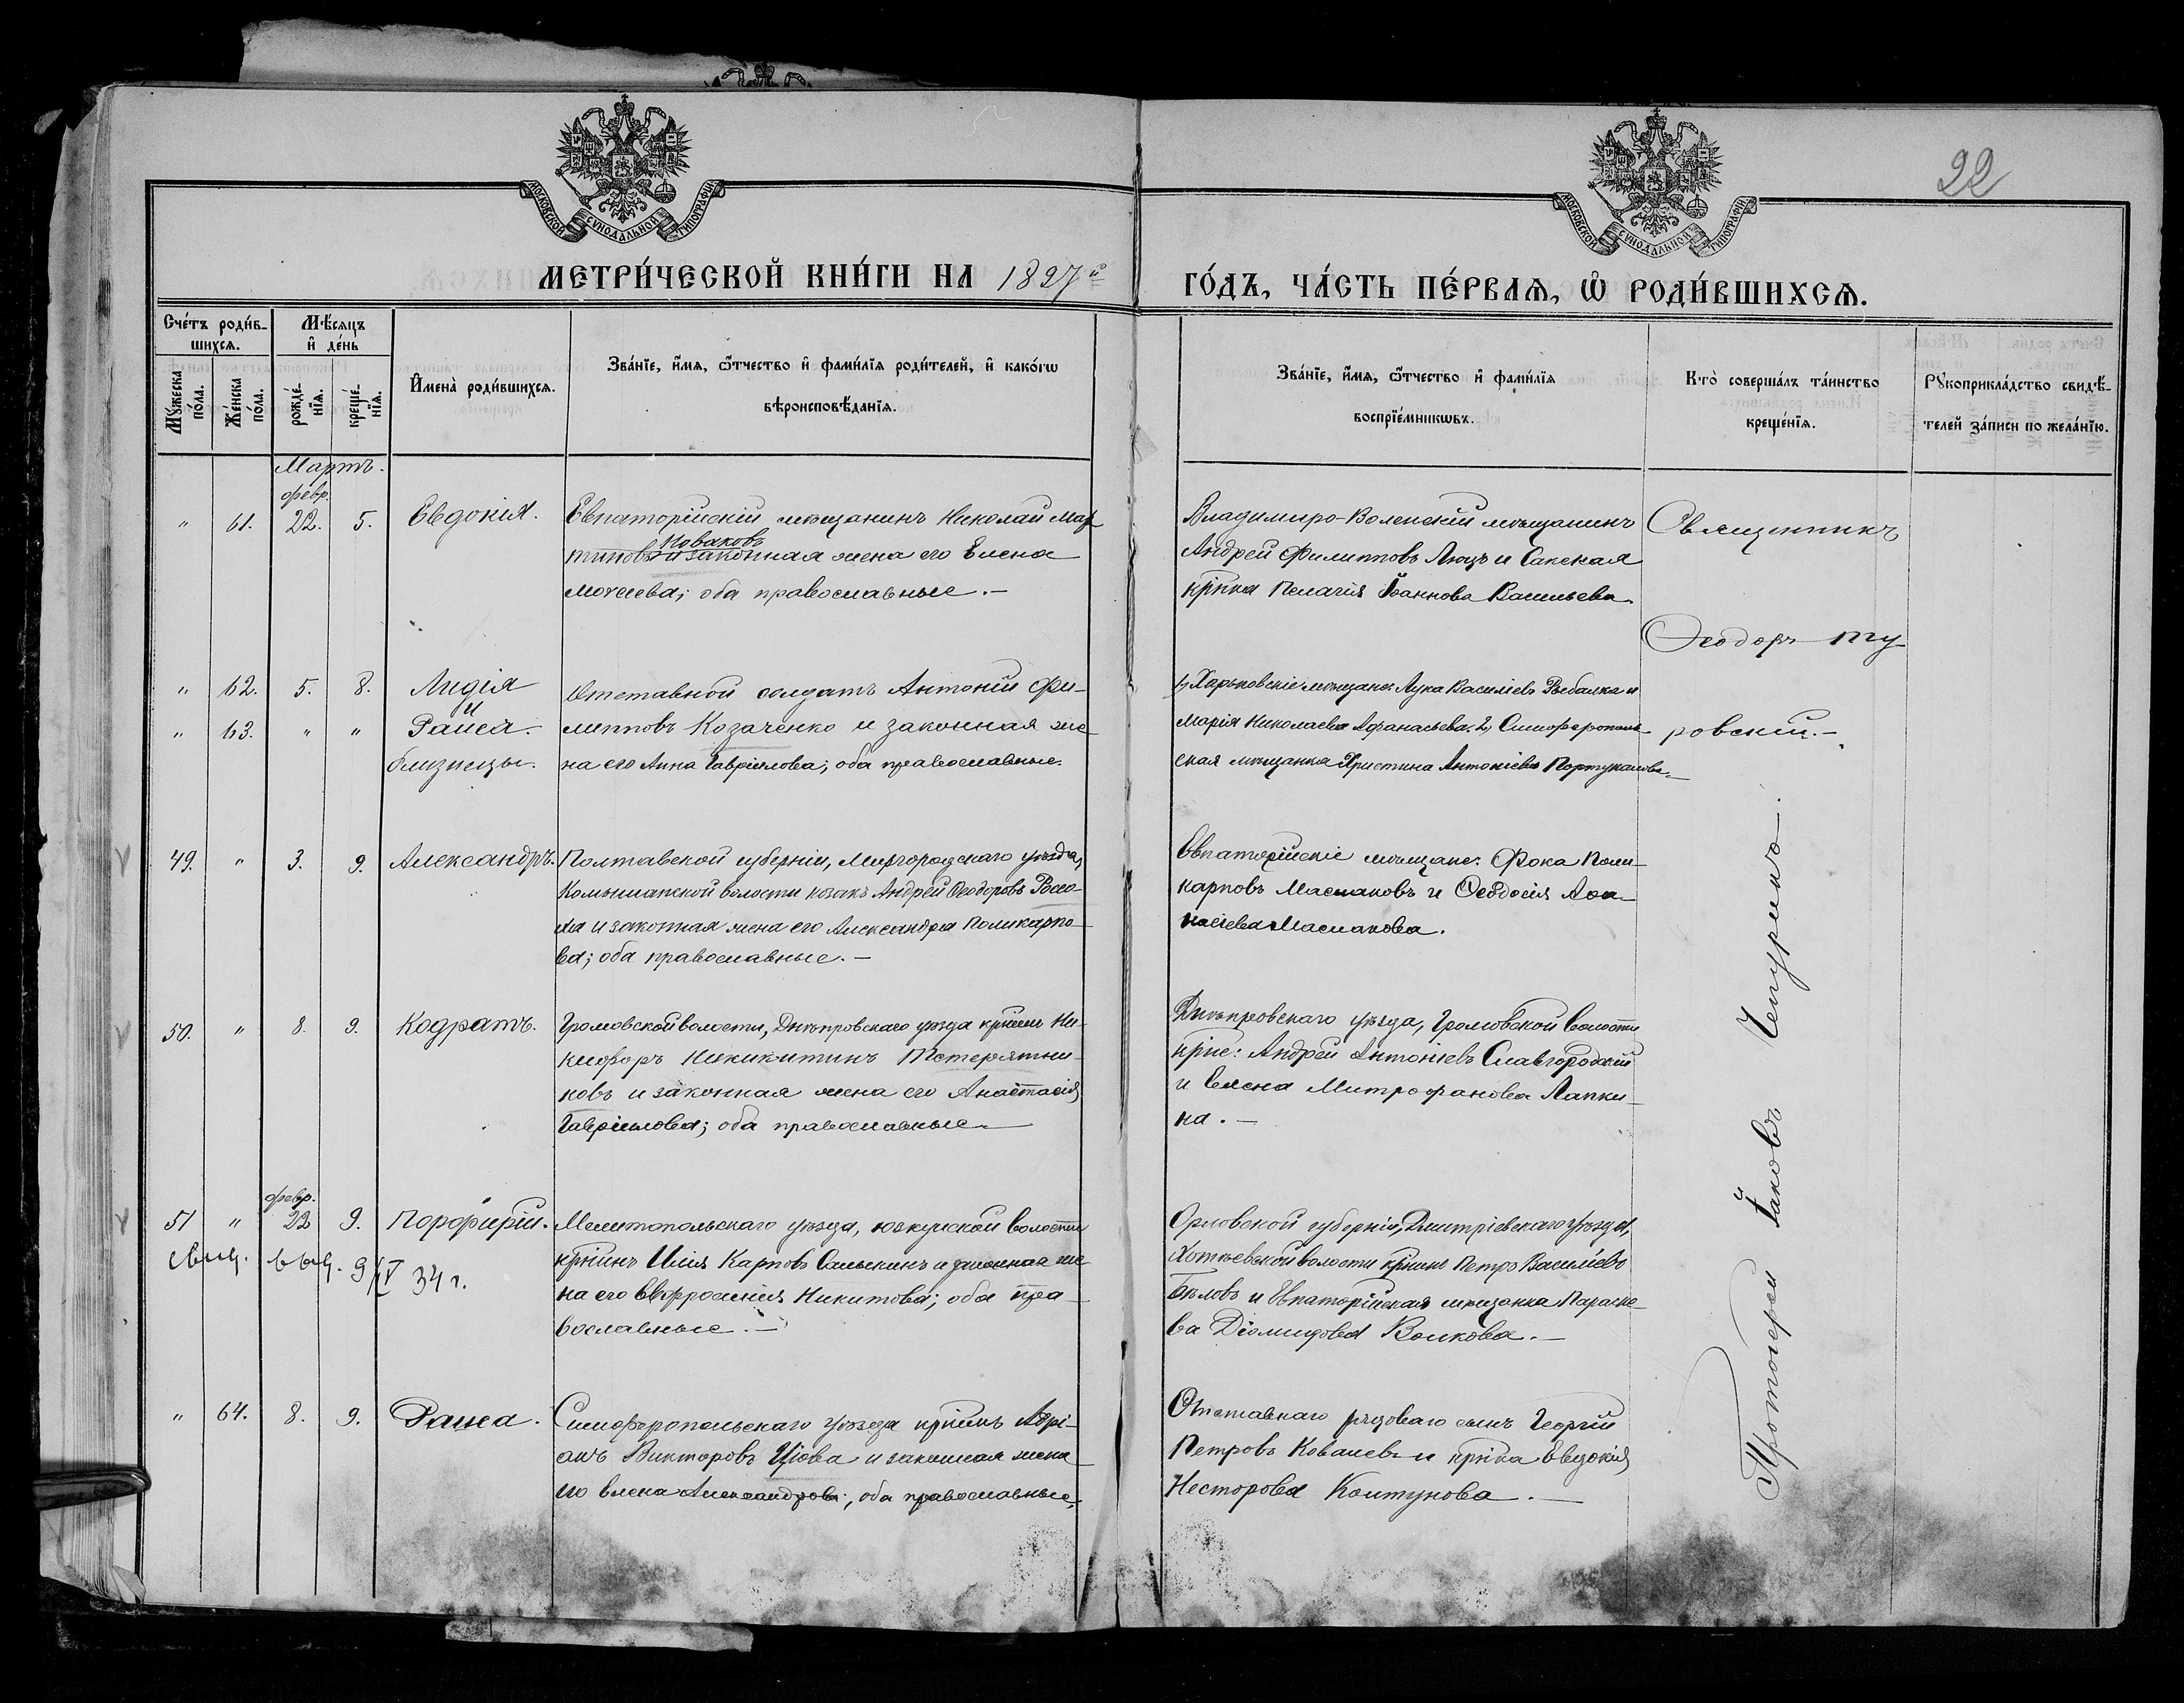 МОСКОВСКОЙ СУНОДАЛЬНОЙ ТИПОГРАФІИ
МОСКОВСКОЙ СУНОДАЛЬНОЙ ТИПОГРАФІИ
22
МЕТРИ́ЧЕСКОЙ КНИ́ГИ НА 1897й
ГО́ДЪ, ЧА́СТЬ ПЕ́РВАѦ, Ѡ҆ РОДИ́ВШИХСѦ.
Сче́тъ роди́в-
шихсѧ.
Мꙋ́жеска
по́ла.
Же́нска
по́ла.
Мѣ́сѧцъ
и҆ де́нь
рожде́-
нїѧ.
креще́-
нїѧ.
И҆мена̀ роди́вшихсѧ.
Зва́нїе, и҆́мѧ, ѻ҆́тчество и҆ фами́лїѧ роди́телей, и҆ како́гѡ
вѣроисповѣ́данїѧ.
Зва́нїе, и҆́мѧ, ѻ҆́тчество и҆ фами́лїѧ
воспрїе́мникѡвъ.
Кто̀ соверша́лъ та́инство
креще́нїѧ.
Рꙋкоприкла́дство свидѣ́-
телей за́писи по жела́нїю.
Мартъ.
февр.
" 61. 22. 5. Евдокія.
Евпаторійскій мѣщанинъ Николай Мар-
Новаковъ
тиновъ и законная жена его Елена
Моѵсеева; оба православные. —
Владимиро-Воленскій мѣщанинъ
Андрей Филипповъ Люцъ и Сакская
крінка Пелагія Іоаннова Васильева.
Священникъ
Ѳеодоръ Ту-
ровскій. —
" 62. 5. 8. Лидія
и
" 63. " " Раиса.
близнецы.
Отставной солдатъ Антоній Фи-
липповъ Козаченко и законная же-
на его Анна Гавріилова; оба православные.
1) Харьковскіе мѣщане: Лука Васильевъ Рыбалка и
Марія Николаева Афанасьева. 2) Симферополь-
ская мѣщанка Христина Антоніева Портукалова.
49. " 3. 9. Александръ.
Полтавской губерніи, Миргородскаго уѣзда,
Комышанской волости козакъ Андрей Ѳеодоровъ Россо-
ха и законная жена его Александра Поликарпо-
ва; оба православные. —
Евпаторійскіе мѣщане: Фока Поли-
карповъ Маслаковъ и Ѳеодосія Аѳа-
насіева Маслакова.
50. " 8. 9. Кодратъ.
Громовской волости, Днѣпровскаго уѣзда крінъ Ни-
кифоръ Никикитинъ Тетерятни-
ковъ и законная жена его Анастасія
Гавріилова; оба православные. —
Днѣпровскаго уѣзда, Громовской волости
кріне: Андрей Антоніевъ Славгородскій
и Елена Митрофанова Лапки-
на. —
февр.
51 " 22 9. Порфирій.
свид. выд. 9/IV 34 г.
Мелитопольскаго уѣзда, волости
крінинъ Илія Карповъ Салыкинъ и законная же-
на его Евфросинія Никитова; оба пра-
вославные. —
Орловской губерніи, Дмитріевскаго уѣзда,
Хотѣевской волости крінинъ Петръ Васильевъ
Бѣловъ и Евпаторійская мѣщанка Параске-
ва Діомидова Волкова. —
" 64. 8. 9. Раиса.
Симферопольскаго уѣзда крінинъ Адрі-
анъ Викторовъ Цюва и законная жена
его Елена Александрова; оба православные.
Отставнаго рядоваго сынъ Георгій
Петровъ Ковалевъ и крінка Евдокія
Несторова Колтунова. —
Протоіерей Іаковъ Чепуринъ.